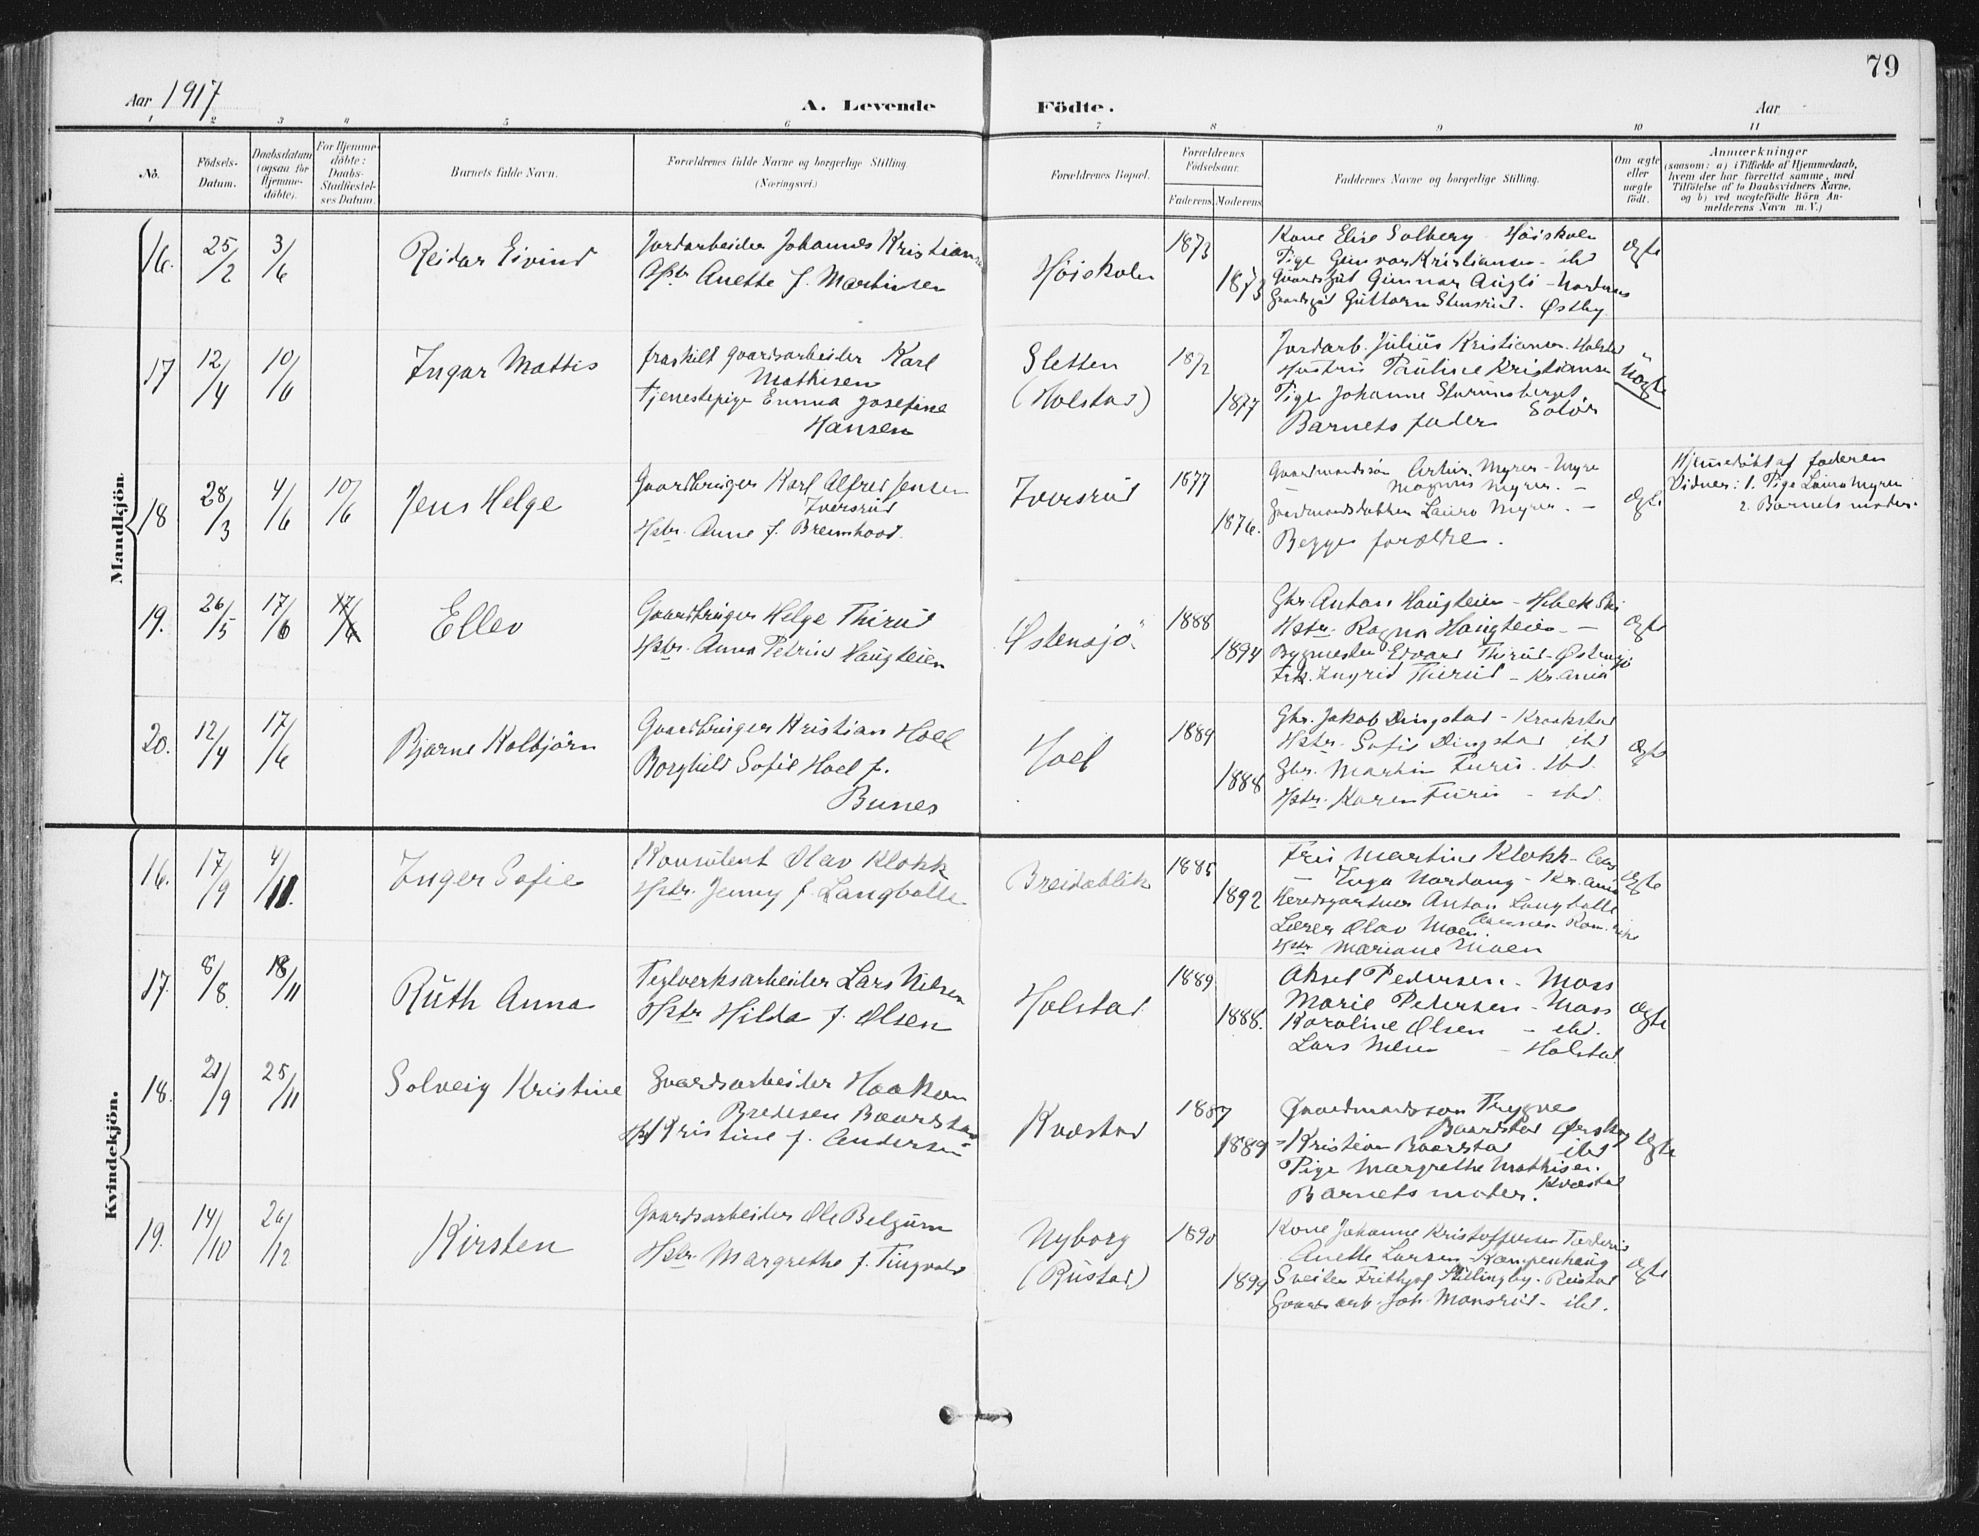 79
Aar 1917
A. Levende Födte.
Aar
1 2 3 4 5 6 7 8 9 10 11
No.
Födsels-Datum.
Daabsdatum (ogsaa for Hjemme-döbte).
For Hjemme-döbte: Daabs-Stadfæstel-ses Datum.
Barnets fulde Navn.
Forældrenes fulde Navne og borgerlige Stilling
(Næringsvei.)
Forældrenes Bopæl.
Forældrenes Födselsaar.
Faderens Moderens
Faddernes Navne og borgerlige Stilling.
Om ægte eller uægte födt.
Anmærkninger
(saasom: a) i Tilfælde af Hjemmedaab,
hvem der har forrettet samme, med
Tilföielse af to Daabsvidners Navne,
og b) ved uægtefödte Börn An-
melderens Navn m. V.)
Mandkjön.
16. 25/2 3/6 Reidar Eivind
Jordarbeider Johannes Kristiansen
Hstr Anette f. Martinsen
Høiskolen 1873 1873
Kone Elise Solberg Høiskolen
Pige Gunvor Kristiansen - ibd
Gaardsgut Gunnar
Gaardsgut Guttorm Stensrud. Østby
ægte
17 12/4 10/6 Ingar Mattis
fraskilt gaardsarbeider Karl
Mathisen
Tjenestepige Emma Josefine
Hansen
Sletten
(Holstad)
1872 1877
Jordarb. Julius Kristiansen. Holstad
Hustru Pauline Kristiansen
Pige Johanne
Solør
Barnets fader
Uægte
18 28/3 4/6 10/6 Jens Helge
Gaardbruger Karl Alfred Jensen
Iversrud
Hstr. Anne f.
Iversrud 1877 1876.
Gaardmandssøn Artur Myrer - Myrer
Magnus Myrer. -
Gaardmandsdatter Laura Myrer. -
Begge forældre.
ægte
Hjemmedøbt af faderen
Vidner: 1. Pige Laura Myrer
2. Barnets moder.
19. 26/5 17/6 17/6 Ellev
Gaardbruger Helge Thirud
Hstr. Anna Petrine Haugteien
Østensjø 1888 1894
Gbr Anton Haugteien - Ski
Hstr. Ragna Haugteien -
Bygmester Edvard Thirud - Østensjø
Frk. Ingrid Thirud - Kr.ania
ægte
20. 12/4 17/6 Bjarne Kolbjørn
Gaardbruger Kristian Hoel
Borghild Sofie Hoel f.
Bunes
Hoel 1889 1888
Gbr. Jakob Dingstad - Kraakstad
Hstr. Sofie Dingstad ibd
Gbr. Martin Furu. ibd.
Hstr. Karen Furu - ibd.
ægte
Kvindekjön.
16. 17/9 4/11. Inger Sofie
Konsulent Olav Klokk
Hstr. Jenny f. Langballe
Breidablik 1885 1892
Fru Martine Klokk - Aas
- Inga Nordang - Kr.ania
Herredsgartner Anton Langballe
Lærer Olav Moen.
Hstr Mariane Moen
ægte
17. 8/8. 18/11 Ruth Anna
Teglverksarbeider Lars Nilsen
Hstr Hilda f. Olsen
Holstad 1889 1888.
Aksel Pedersen. Moss
Marie Petersen - Moss
Karoline Olsen - ibd.
Lars Nilsen - Holstad
ægte
18. 21/9 25/11 Solveig Kristine
Gaardsarbeider Haakon
Bredesen Baardstad
Hstr Kristine f. Andersen
Kvæstad 1887 1889
Gaardmandssøn Trygve
Baardstad
- Kristian Baardstad ibd
Pige Margrethe Mathisen.
Kvæstad
Barnets moder.
ægte
19. 14/10 26/12 Kirsten
Gaardsarbeider Ole Belgum
Hstr. Margrethe f. Tingvold
Nyborg
(Rustad)
1890 1899
Kone Johanne Kristoffersen
Anette Larsen - Kampenhaug
Sveiser Fridtjof Skillingby - Rustad
Gaardsarb. Joh. Monsrud - ibd.
ægte